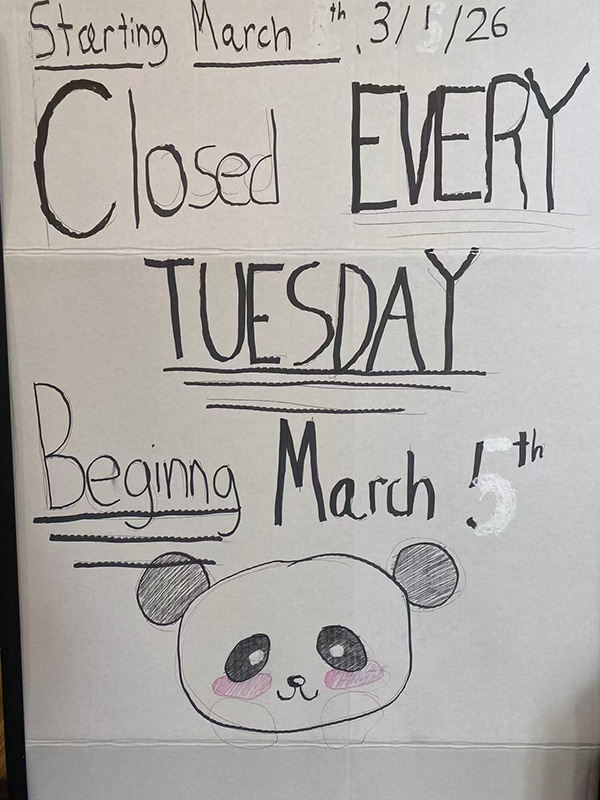 Starting March th, 3/ /26
Closed EVERY
TUESDAY
Beginng March 5th